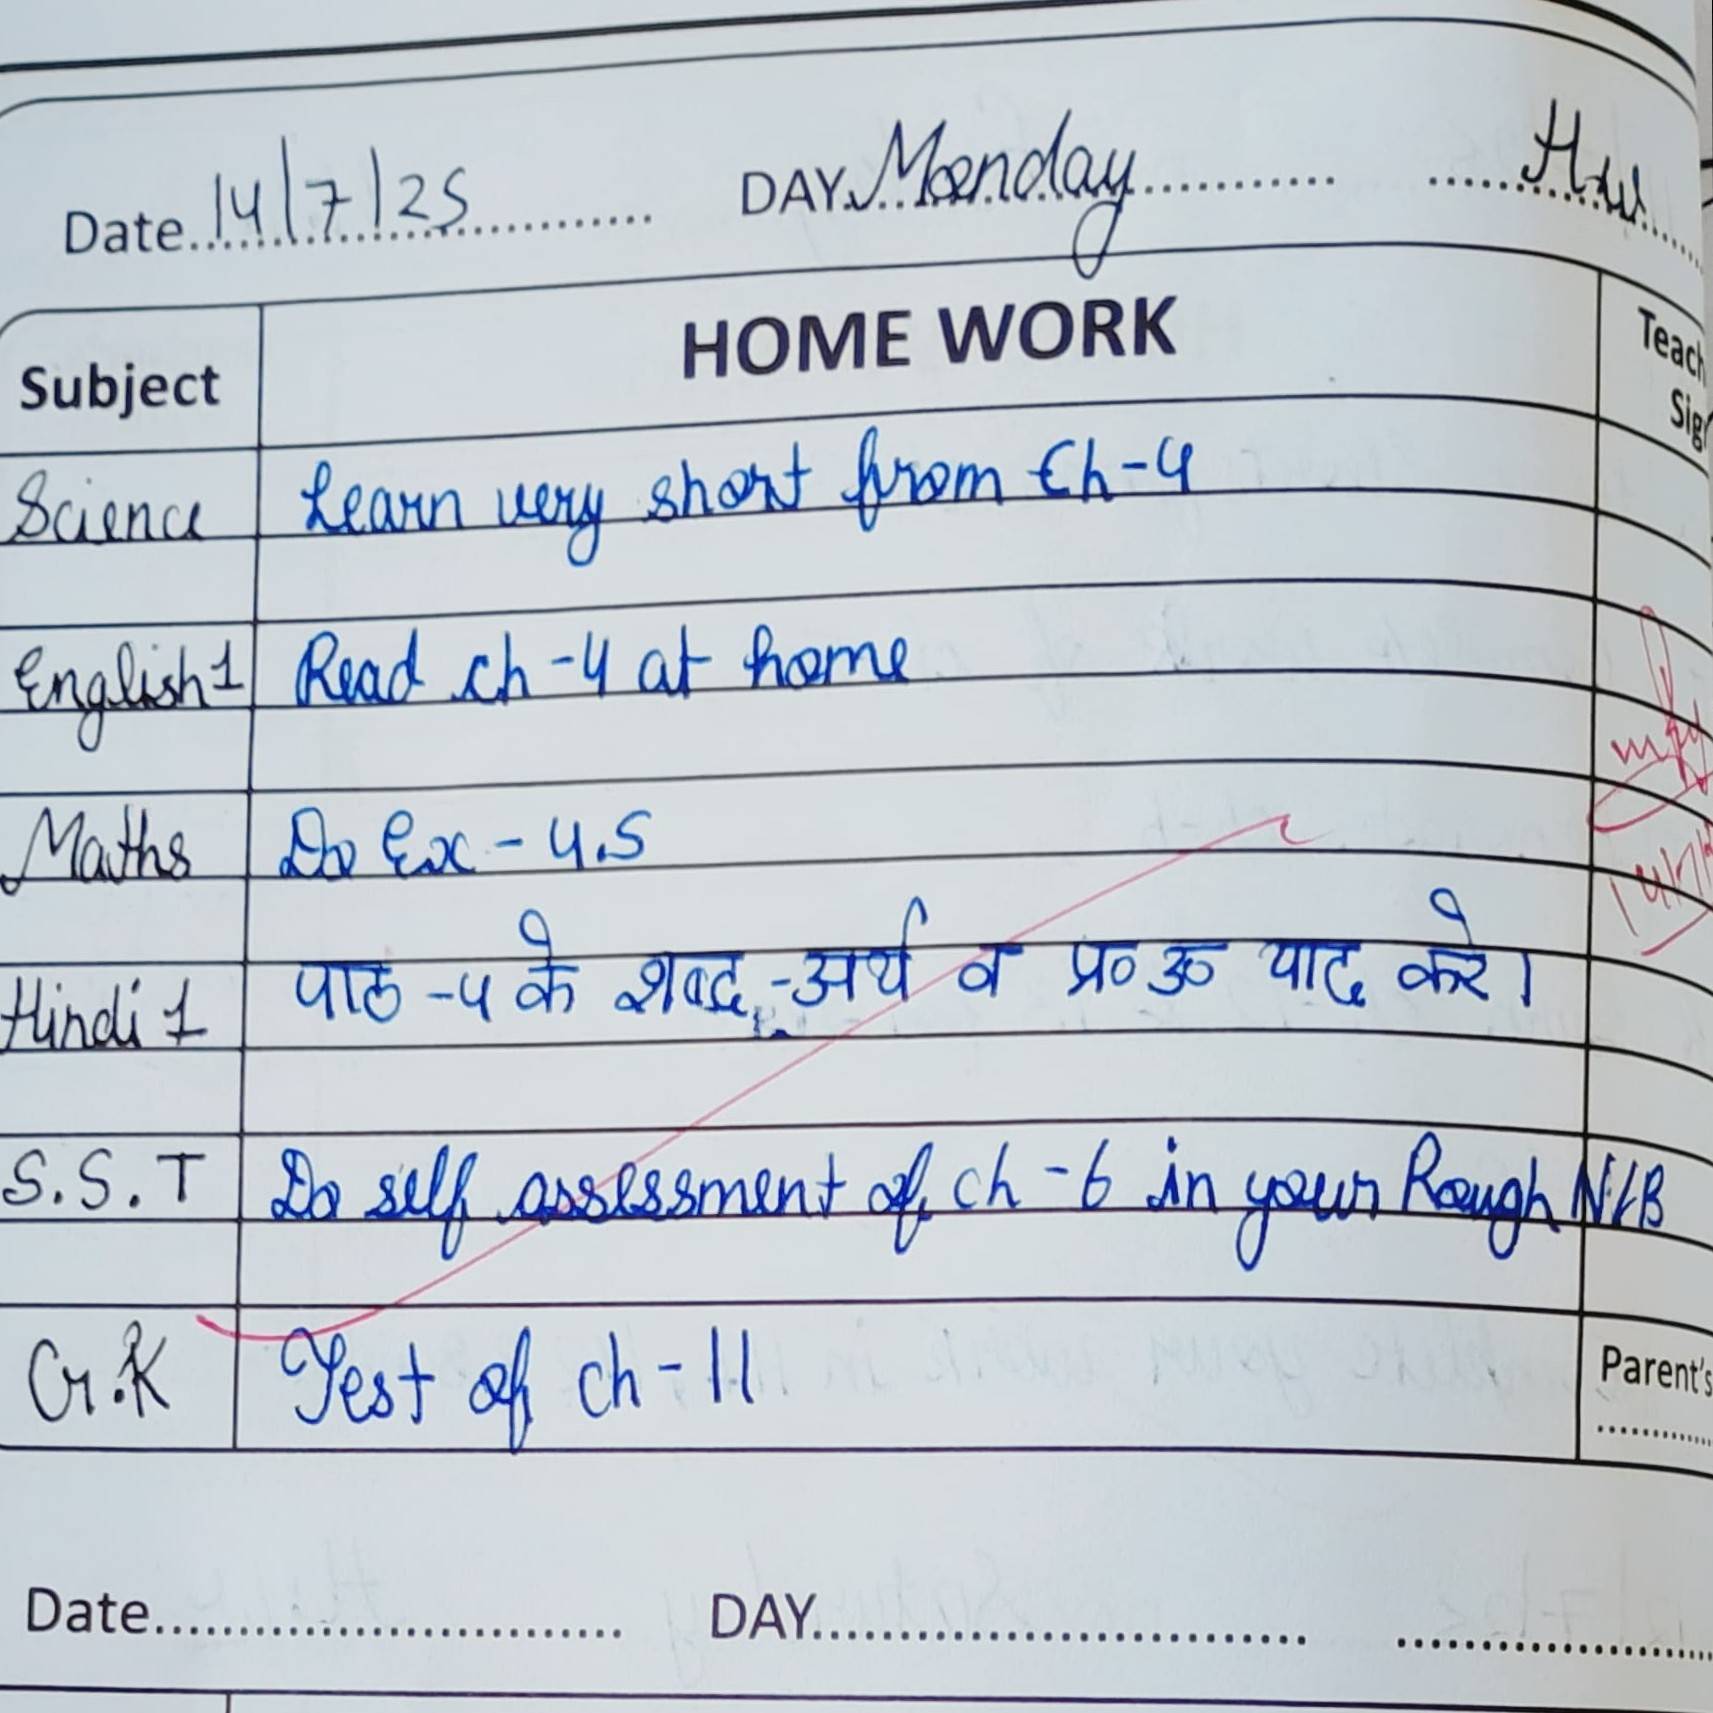 Date 14/7/25 DAY Monday H.w
Subject HOME WORK Teach
Sig
Science Learn very short from Ch-4
English 1 Read ch-4 at home
Maths Do Ex-4.5
Hindi 1 पाठ-4 के शब्द-अर्थ व प्र० उ० याद करे।
S.S.T Do self assessment of ch-6 in your Rough N/B
G.K Test of ch-11
Parent's
Date DAY